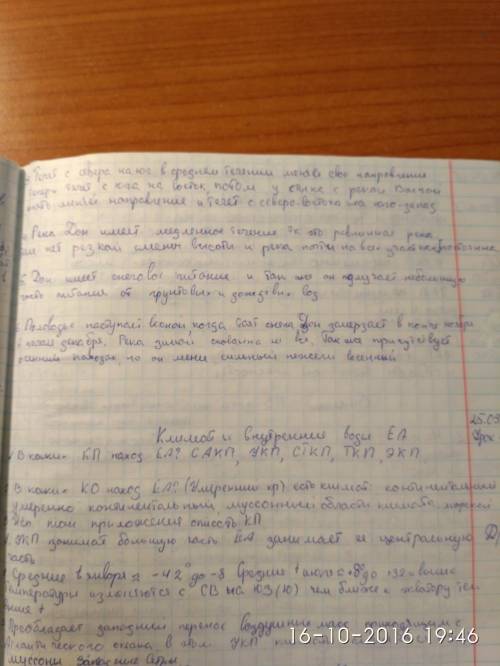 Течёт с севера на юг в среднем течении меняя своё направление
течёт с юга на восток, потом у стыка с рекой
меняет направление и течёт с северо-востока на юго-запад
Река Дон имеет медленное течение тк это равнинная река
нет резкой смены высоты и река почти на всех участках
Дон имеет снеговое питание и так же он получает небольшую
часть питания от грунтовых и дождевых вод
Половодье наступает весной, когда тает снег. Дон замерзает в конце ноября
в начале декабря. Река зимой скована льдом. Так же присутствует
осенний паводок, но он менее сильный нежели весенний
25.09
Урок
Климат и внутренние воды ЕА
В каких КП наход ЕА? САКП, УКП, СТКП, ТКП, ЭКП
В каких КО наход ЕА? (Умеренный кр) есть климат: континентальный
умеренно континентальный, муссонный области климата морской
Исп план приложения опиесть КП
УКП занимает большую часть ЕА занимает её центральную
часть
Средние t января от -42° до -8 Средние t июля от +8° до +32
температуры изменяются с СВ на ЮЗ (Ю) чем ближе к экватору тем
Преобладает западный перенос воздушных масс приходящим с
Атлантического океана, в УКП
муссоны
16-10-2016 19:46